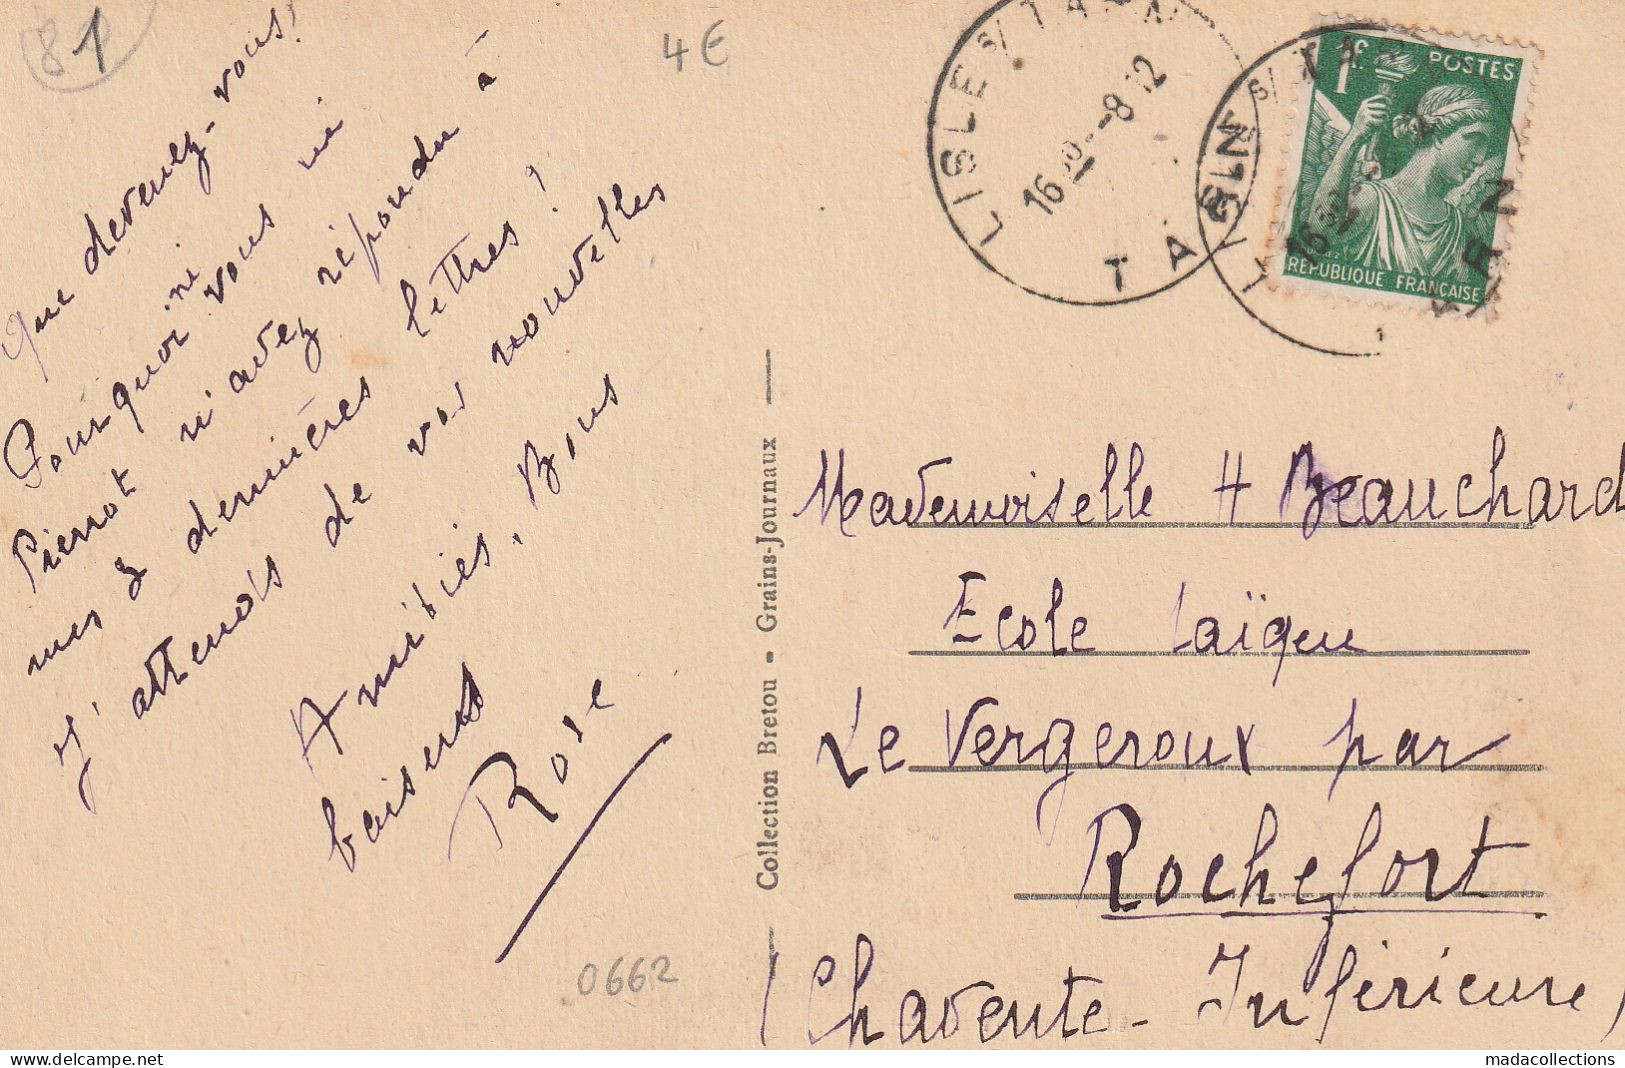 81
4€
Que devenez-vous!
Pourquoi ni vous ni
Pierrot n'avez répondu à
mes 3 dernières lettres!
J'attends de vos nouvelles
Amitiés, Bons
baisers
Rose
0662
Collection Bretou - Grains-Journaux
LISLE S/ TARN
16 30 - 8 12
TARN
LISLE S/ TARN
TARN
1F POSTES
REPUBLIQUE FRANÇAISE
Mademoiselle H Beauchard
Ecole Laïque
Le Vergeroux par
Rochefort
(Charente-Inférieure)
madacollections